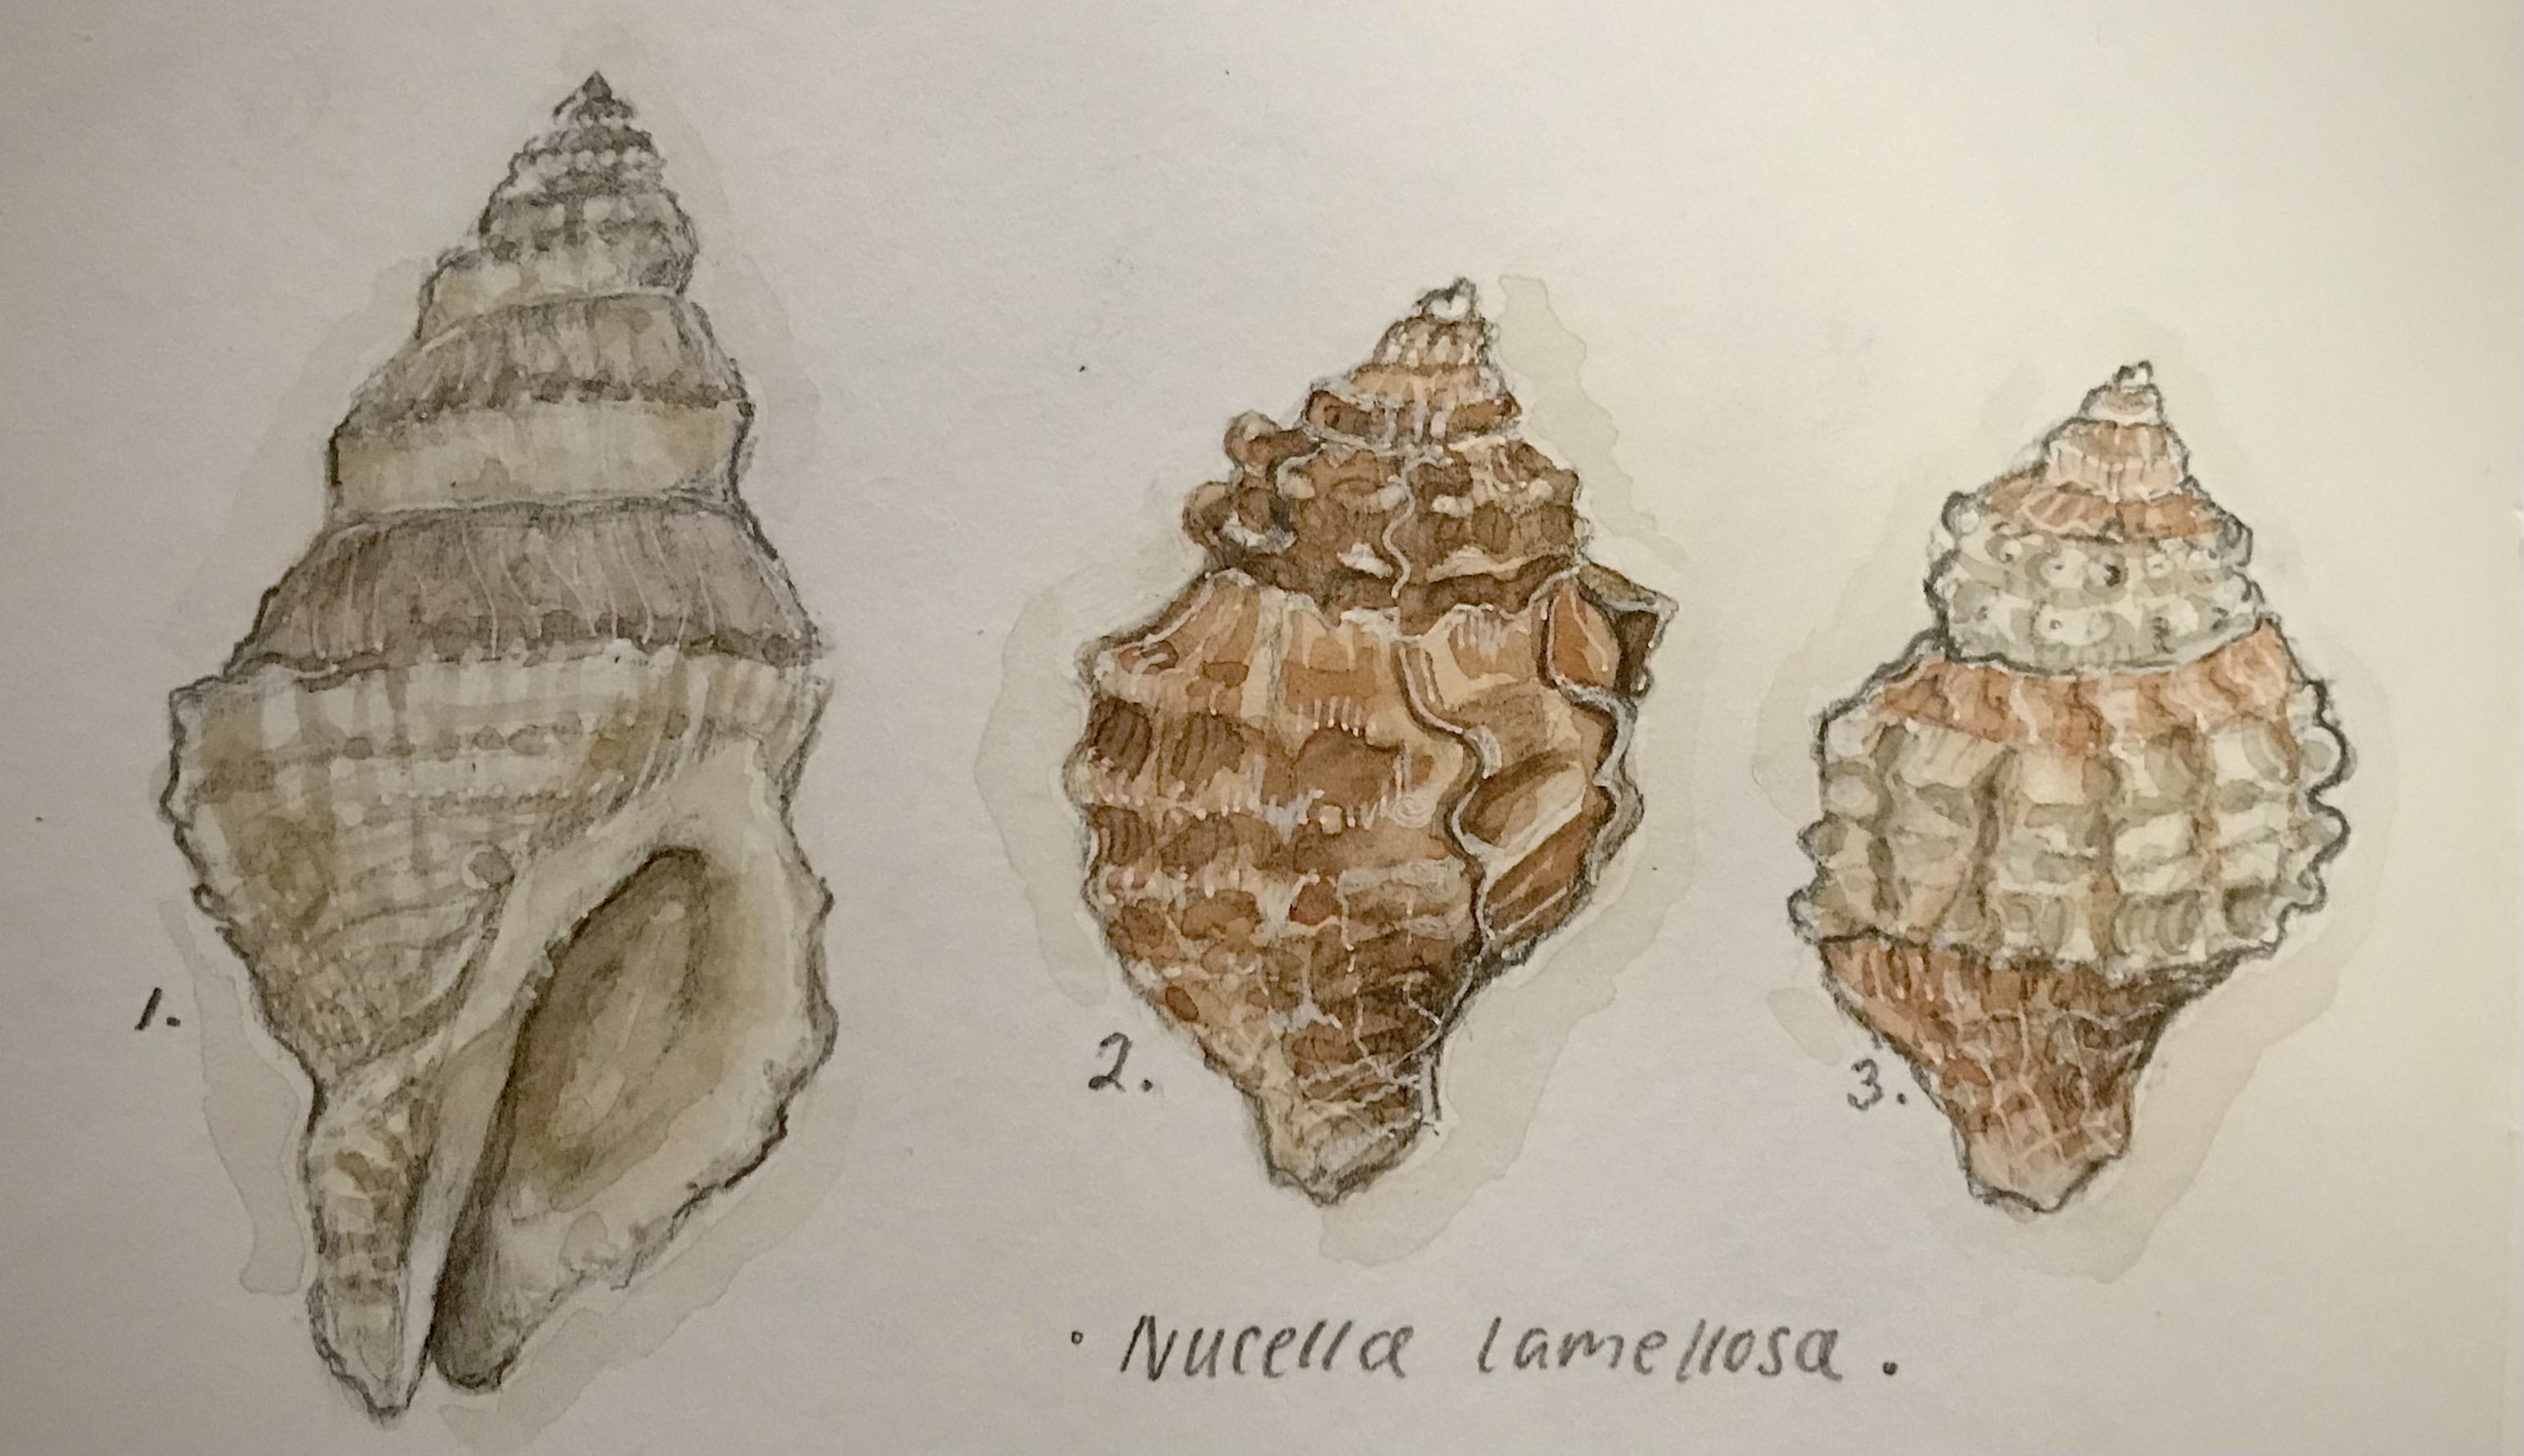 1.
2.
3.
· Nucella lamellosa.